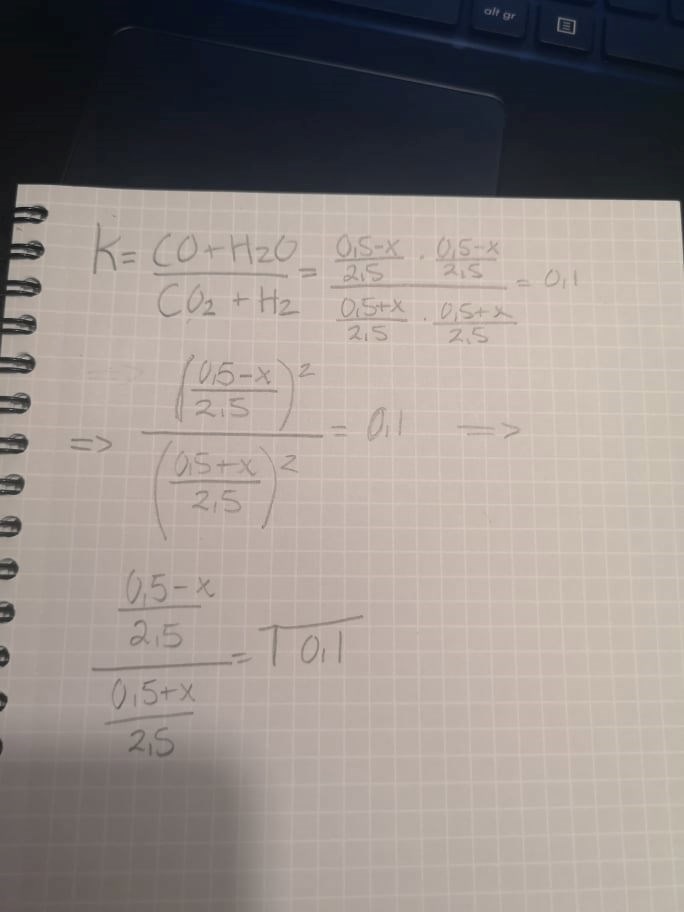 alt gr
K = CO+H2O / CO2 + H2 = (0,5-x / 2,5 · 0,5-x / 2,5) / (0,5+x / 2,5 · 0,5+x / 2,5) = 0,1
=> (0,5-x / 2,5)² / (0,5+x / 2,5)² = 0,1 =>
(0,5-x / 2,5) / (0,5+x / 2,5) = √0,1